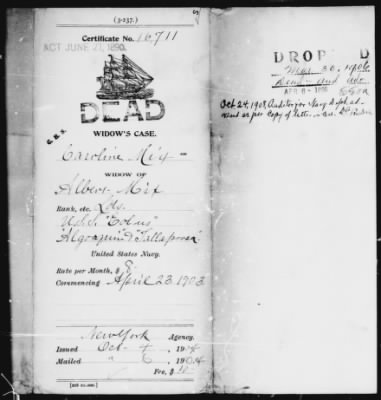 (3-237.)
Certificate No. 16711
ACT JUNE 27, 1890.
DEAD
WIDOW'S CASE.
Caroline Mix
WIDOW OF
Albert Mix
Rank, etc. Lds.
U.S.S.
"Algonquin" & "Tallapoosa"
United States Navy.
Rate per Month, $ 8
Commencing April 23, 1903
New York Agency.
Issued Oct 4, 1904
Mailed " 6, 1904
Fee, $
DROP D
Mar 30, 1906
Dead and
APR 6 - 1906
Oct 24, 1908, Auditor for Navy Dept
as per copy of letter